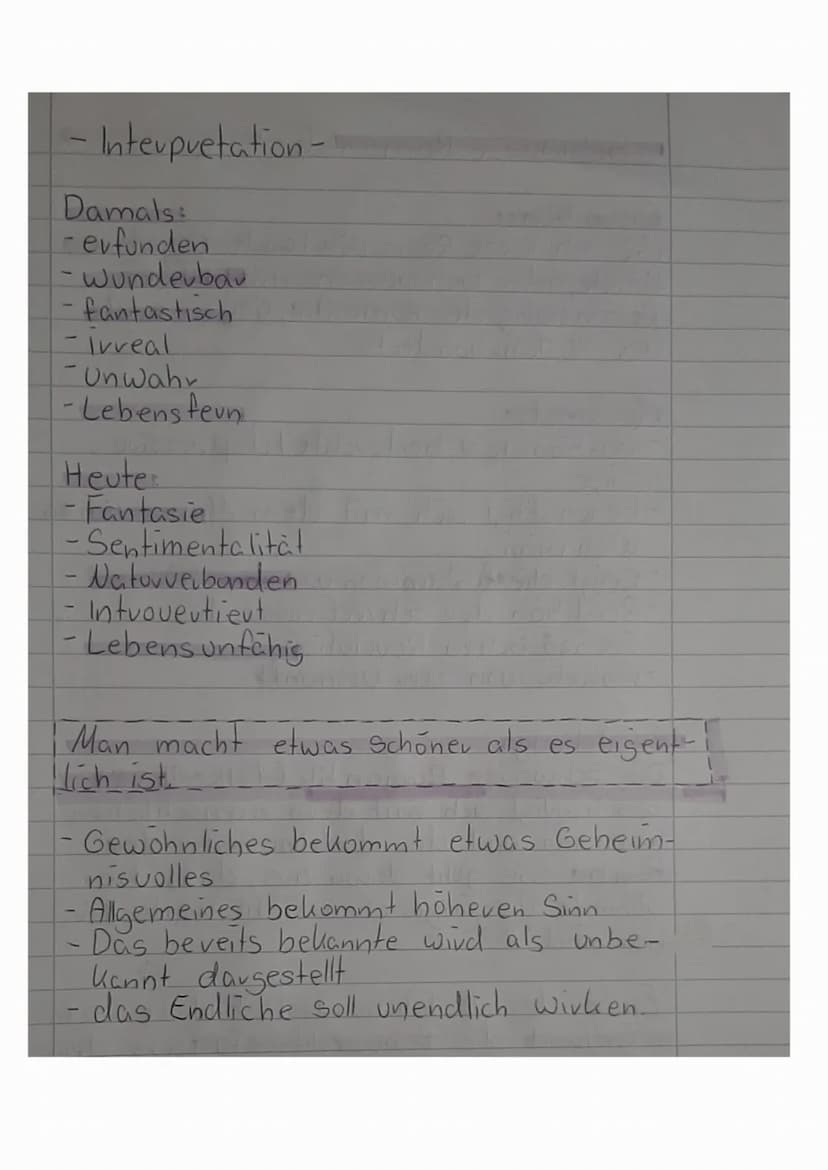 - Interpretation -
Damals:
- erfunden
- wunderbar
- fantastisch
- irreal
- unwahr
- Lebensfern
Heute:
- Fantasie
- Sentimentalität
- Naturverbunden
- Introvertiert
- Lebensunfähig
Man macht etwas schöner als es eigent-
lich ist.
- Gewöhnliches bekommt etwas Geheim-
nisvolles
- Allgemeines bekommt höheren Sinn
- Das bereits bekannte wird als unbe-
kannt dargestellt
- das Endliche soll unendlich wirken.